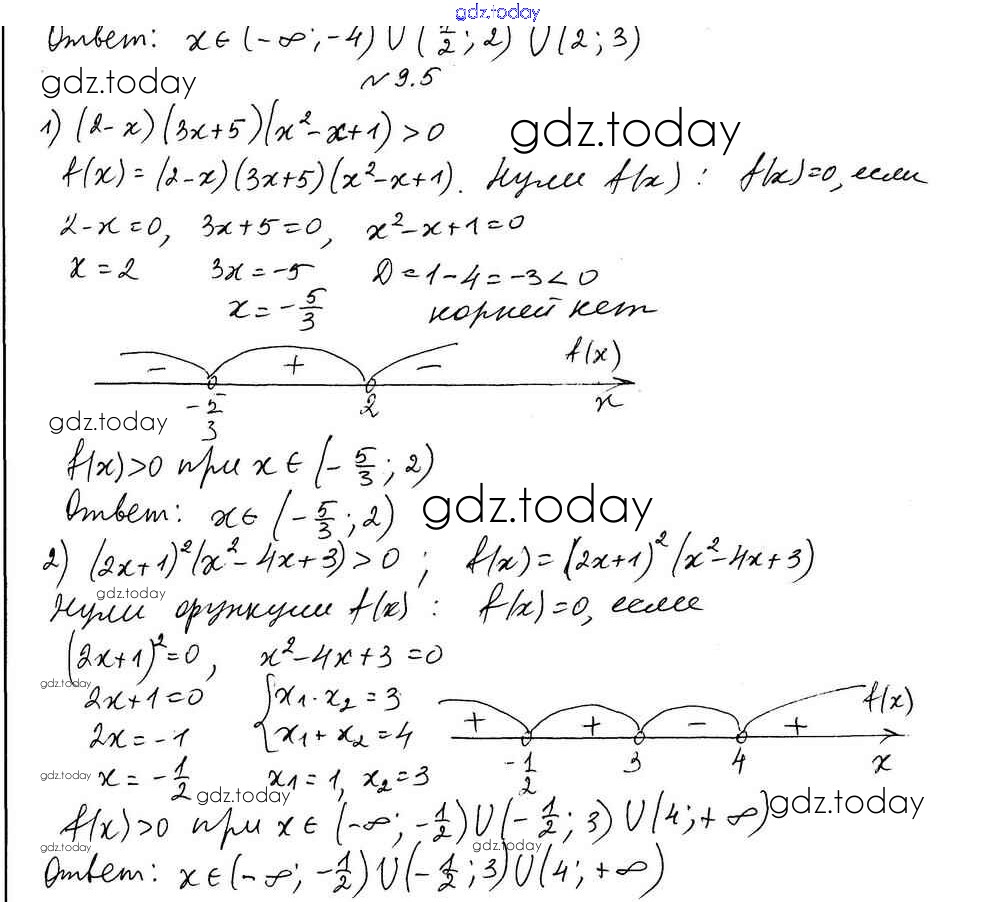 gdz.today
Ответ: x∈(-∞; -4)∪(1/2; 2)∪(2; 3)
gdz.today
№ 9.5
1) (2-x)(3x+5)(x²-x+1)>0
gdz.today
f(x)=(2-x)(3x+5)(x²-x+1). Нули f(x): f(x)=0, если
2-x=0, 3x+5=0, x²-x+1=0
x=2 3x=-5 D=1-4=-3<0
x=-5/3 корней нет
- + - f(x)
-5/3 2 x
gdz.today
f(x)>0 при x∈(-5/3; 2)
Ответ: x∈(-5/3; 2)
gdz.today
2) (2x+1)²(x²-4x+3)>0; f(x)=(2x+1)²(x²-4x+3)
gdz.today
Нули функции f(x): f(x)=0, если
(2x+1)²=0, x²-4x+3=0
gdz.today
2x+1=0 {x₁·x₂=3
2x=-1 {x₁+x₂=4
+ + - + f(x)
-1/2 3 4 x
gdz.today
x=-1/2 x₁=1, x₂=3
gdz.today
gdz.today
f(x)>0 при x∈(-∞; -1/2)∪(-1/2; 3)∪(4; +∞)
gdz.today
gdz.today
Ответ: x∈(-∞; -1/2)∪(-1/2; 3)∪(4; +∞)